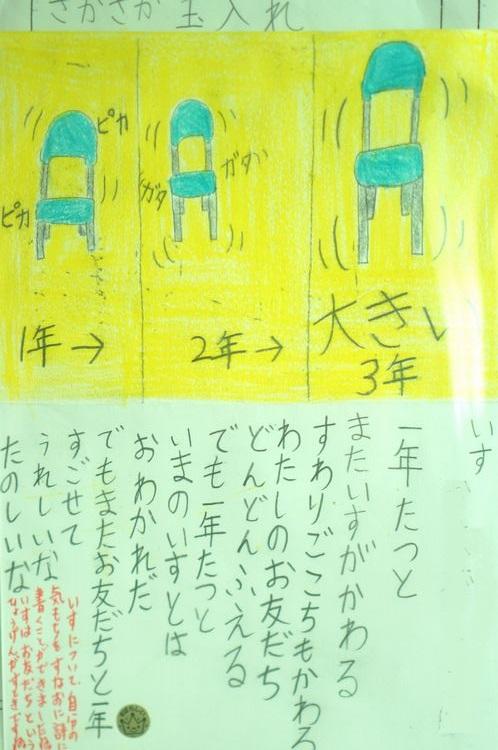 さかさか 玉入れ
ピカ
ピカ
1年→
ガタ
ガタ
2年→
大きい
3年
いす
一年たつと
またいすがかわる
すわりごこちもかわる
わたしのお友だち
どんどんふえる
でも一年たつと
いまのいすとは
おわかれだ
でもまたお友だちと一年
すごせて
うれしいな
たのしいな
いすについて、自分の
気もちをすなおに詩に
書くことができましたね
いすはお友だちという
ひょうげんがすてきですね